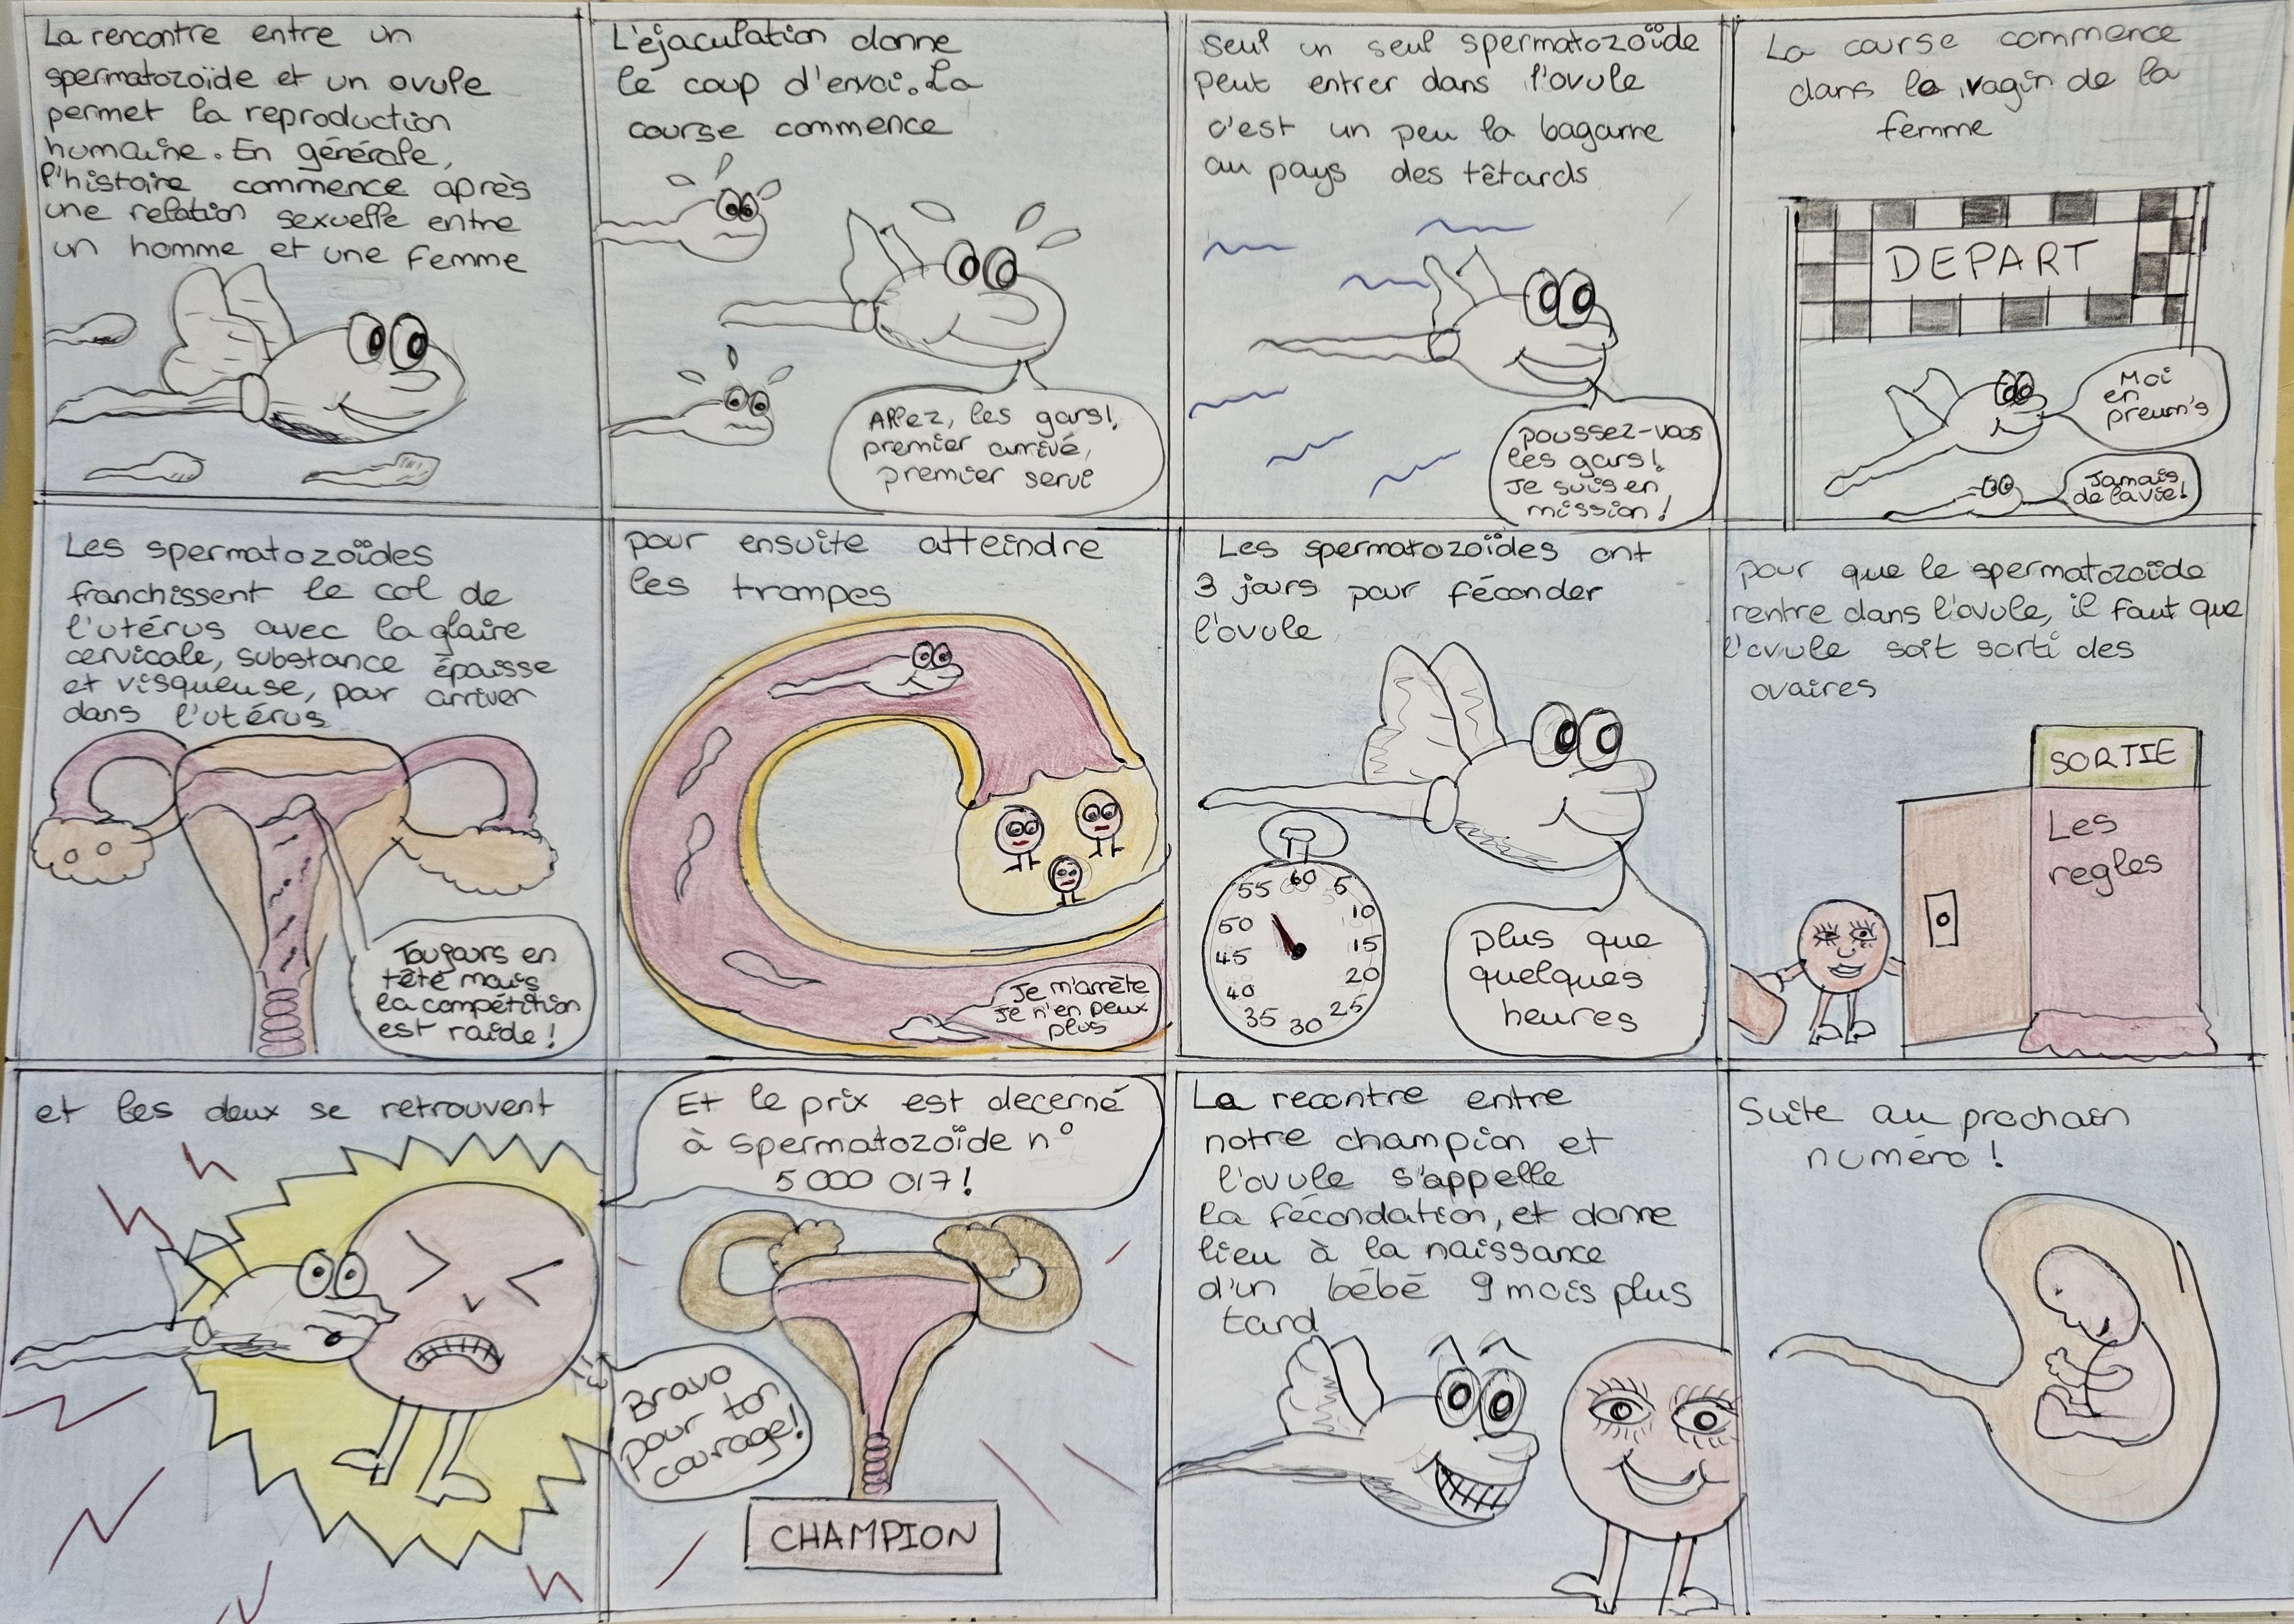 La rencontre entre un
spermatozoïde et un ovule
permet la reproduction
humaine. En générale,
l'histoire commence après
une relation sexuelle entre
un homme et une femme
L'éjaculation donne
le coup d'envoi. La
course commence
Allez, les gars!
premier arrivé,
premier servi
Seul un seul spermatozoïde
peut entrer dans l'ovule
c'est un peu la bagarre
au pays des têtards
poussez-vous
les gars!
Je suis en
mission!
La course commence
dans le vagin de la
femme
DEPART
Moi
en
preum's
Jamais
de la vie!
Les spermatozoïdes
franchissent le col de
l'utérus avec la glaire
cervicale, substance épaisse
et visqueuse, pour arriver
dans l'utérus
Toujours en
tête mais
la compétition
est raide!
pour ensuite atteindre
les trompes
Je m'arrête
Je n'en peux
plus
Les spermatozoïdes ont
3 jours pour féconder
l'ovule
60
5
10
15
20
25
30
35
40
45
50
55
plus que
quelques
heures
pour que le spermatozoïde
rentre dans l'ovule, il faut que
l'ovule soit sorti des
ovaires
SORTIE
Les
regles
et les deux se retrouvent
Et le prix est decerné
à spermatozoïde n°
5000 017!
Bravo
pour ton
courage!
CHAMPION
La recontre entre
notre champion et
l'ovule s'appelle
la fécondation, et donne
lieu à la naissance
d'un bébé 9 mois plus
tard
Suite au prochain
numéro!